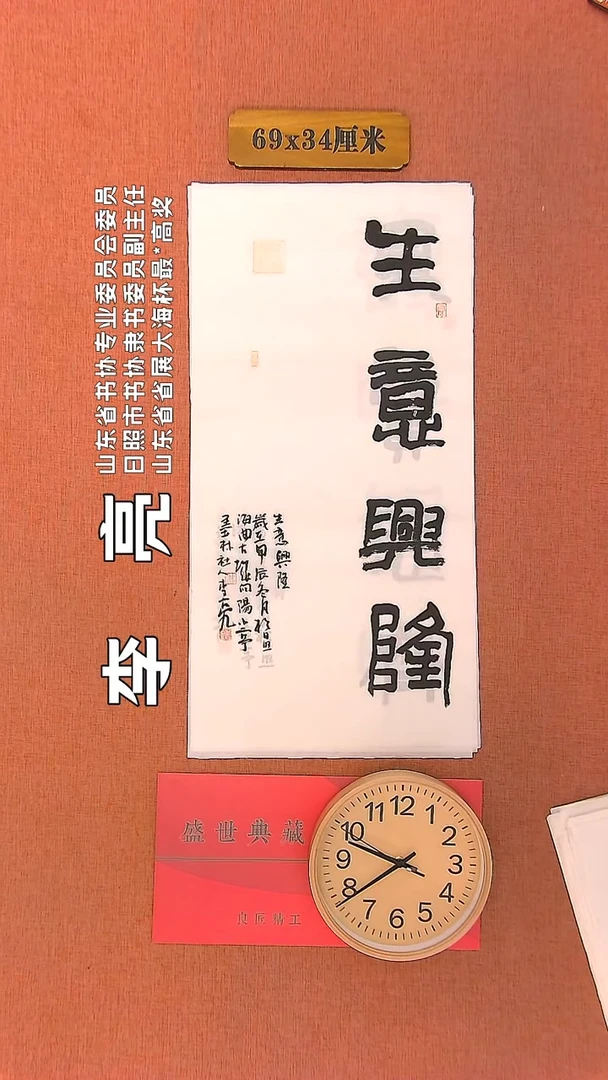 69x34厘米
生意興隆
生意興隆
歲在甲辰冬月於日照
李亮
山东省书协专业委员会委员
日照市书协隶书委员副主任
山东省省展大海杯最*高奖
盛世典藏
良匠精工
12
1
2
3
4
5
6
7
8
9
10
11